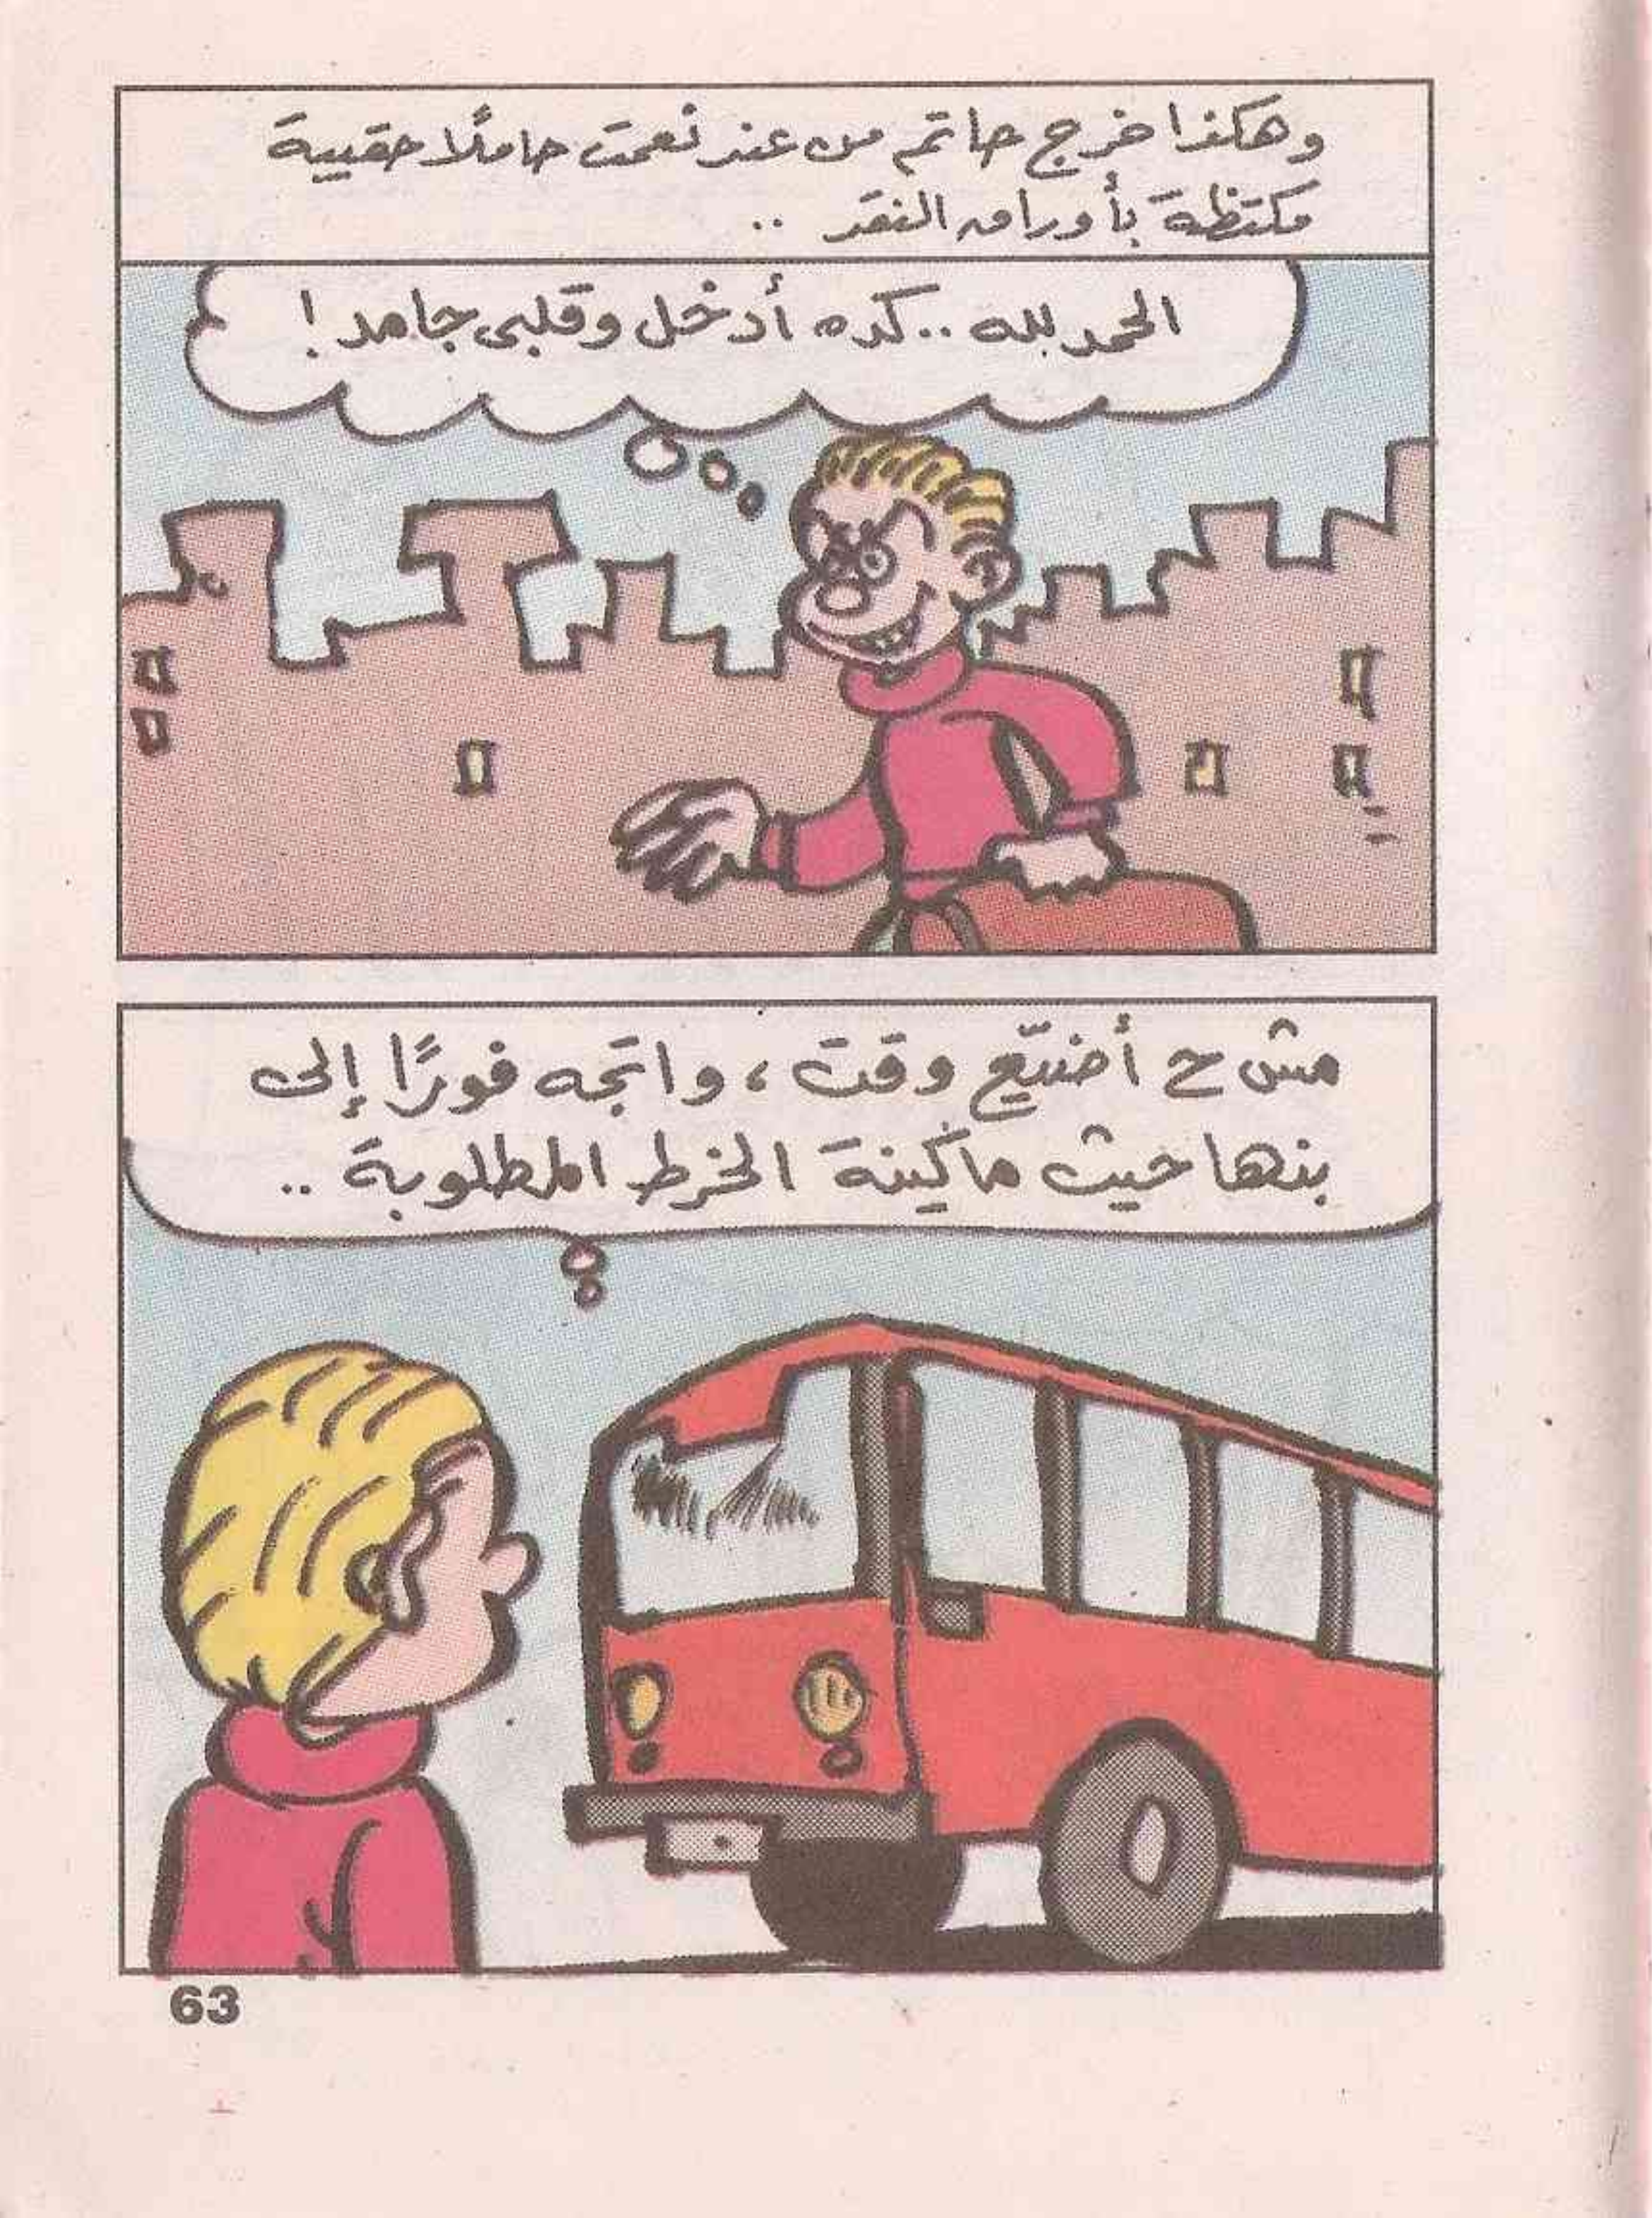 وهكذا خرج حاتم من عند نعمت حاملًا حقيبة
مكتظة بأوراق النقد ..
الحمد لله .. كده أدخل وقلبى جامد !
مش ح أضيّع وقت ، واتجه فورًا إلى
بنها حيث ماكينة الخرط المطلوبة ..
63